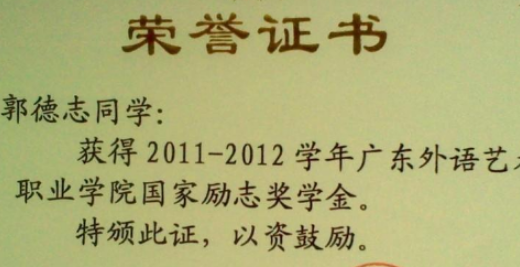 荣誉证书
郭德志同学：
获得2011-2012学年广东外语艺
职业学院国家励志奖学金。
特颁此证，以资鼓励。